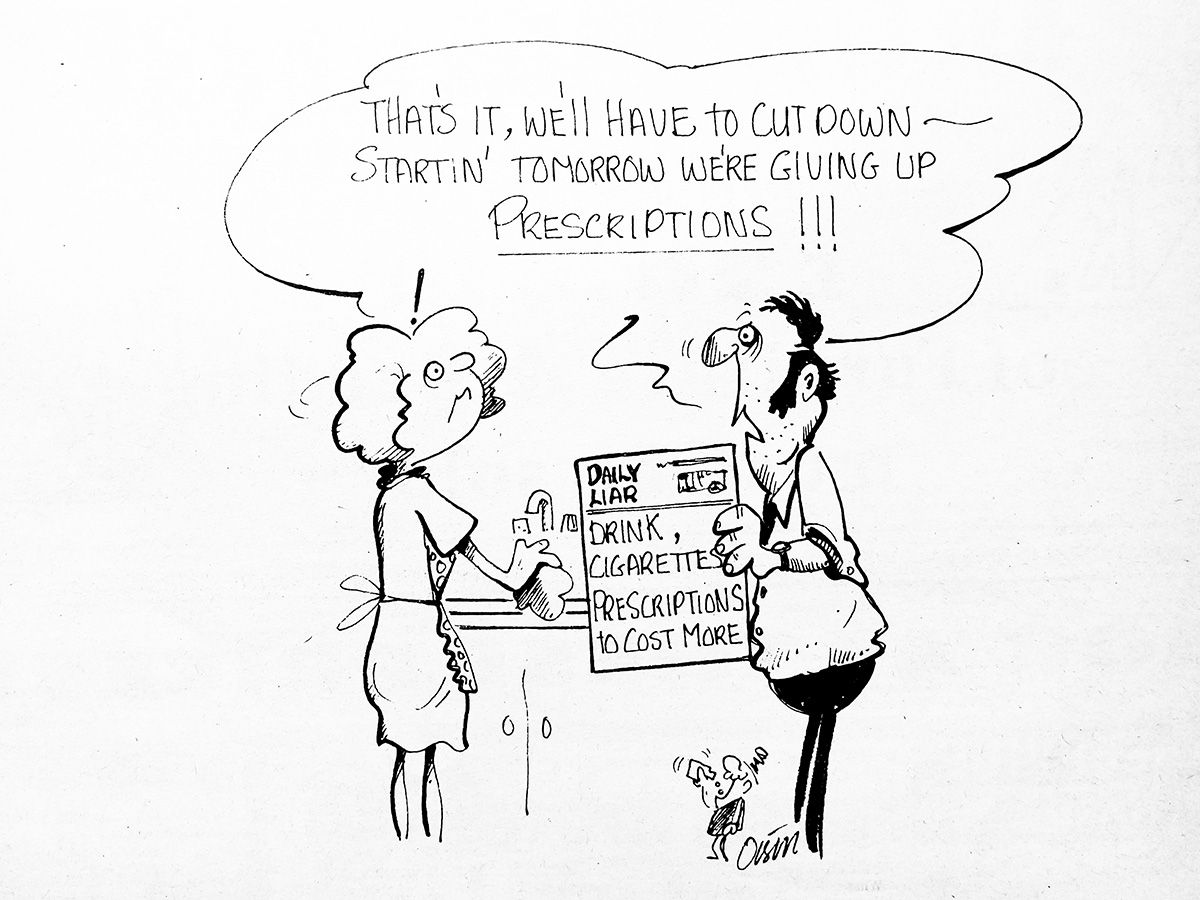 THAT'S IT, WE'll HAVE to CUT DOWN —
STARTIN' TOMORROW WE'RE GIVING UP
PRESCRIPTIONS !!!
!
DAILY
LIAR
DRINK,
CIGARETTES
PRESCRIPTIONS
to COST MORE
Oisín